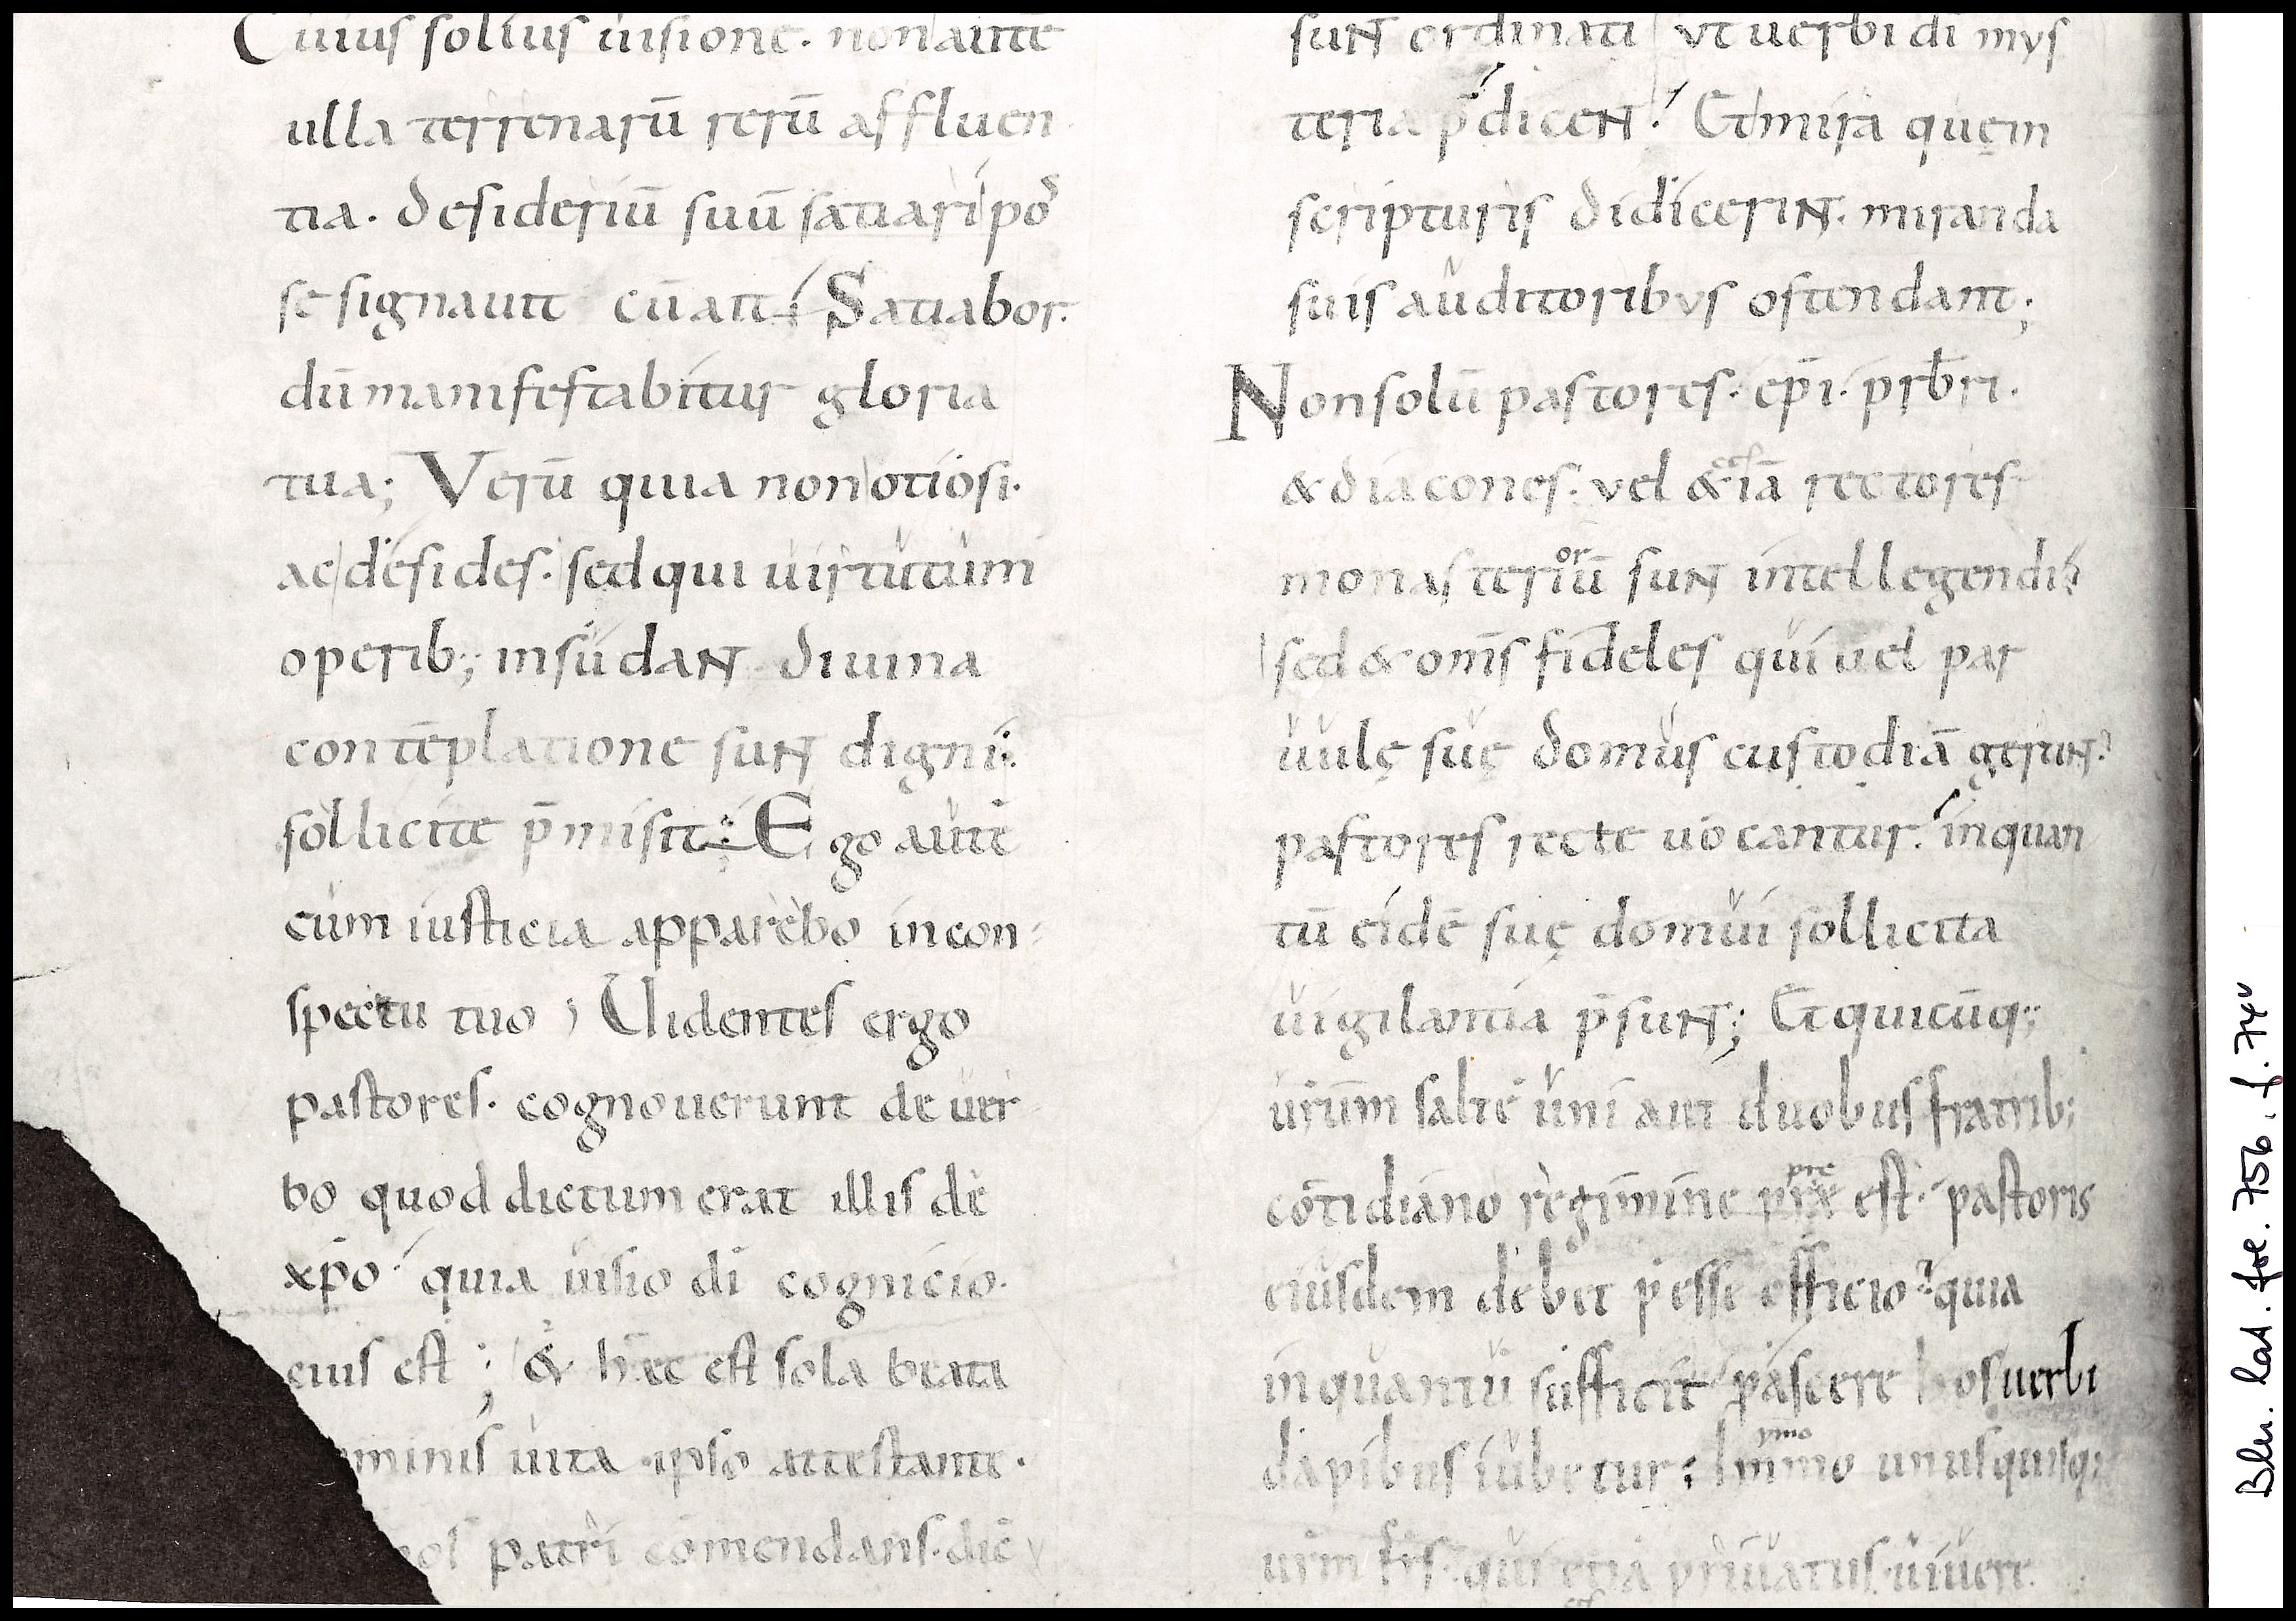 Cuius solius uisione. non autē
ulla terrenarū rerū affluen
tia. desideriū suū satiari pos
se signauit cū ait; Satiabor.
dū manifestabitur gloria
tua; Verū quia non otiosi.
ac desides. sed qui uirtutum
operib; insudaNT diuina
contēplatione suNT digni.
sollicite p̄misit; Ego autē
cum iusticia apparebo in con-
spectu tuo; Uidentes ergo
pastores. cognouerunt de uer-
bo quod dictum erat illis de
xp̄o. quia uisio dī cognicio.
eius est; & haec est sola beata
minis uita ipso attestante.
nos patri cōmendans. dic̄
suNT ordinati ut uerbi dī mys
teria p̄diceNT. Et mira quę in
scripturis didiceriNT. miranda
suis auditoribus ostendant;
Non solū pastores. ep̄i. prb̄ri.
& diacones. vel &iā rectores
monasteriorū suNT intellegendi
sed & om̄s fideles qui uel par
uulę suę domus custodiā geruNT.
pastores recte uocantur. in quan
tū eidē suę domui sollicita
uigilantia p̄suNT; Et quicūq;
urūm saltē uni aut duobus fratrib;
cotidiano regimine pre est. pastoris
eiusdem debet p̄esse officio. quia
inquantū sufficit pascere hos uerbi
dapibus iubetur; Immo unusquisq;
urm̄ fr̄s. qui etiā priuatus uiuere
Bln. lat. fol. 756. f. 74v